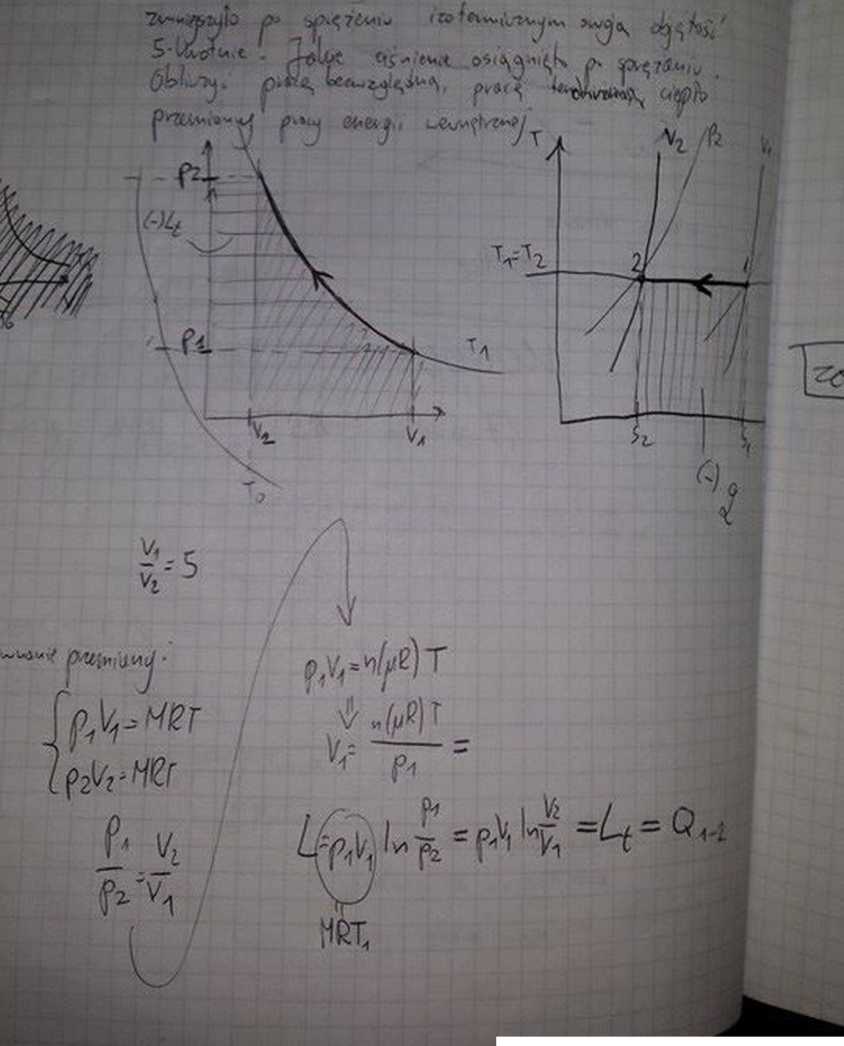 zmniejszyło po sprężeniu izotermicznym swoją objętość
5-krotnie. Jakie ciśnienie osiągnięto po sprężaniu.
Obliczyć pracę bezwzględną, pracę techniczną, ciepło
przemiany pracy energii wewnętrznej
T V2 P2 V1
P2
(-)Lt
T1=T2 2 1
P1
T1
20
V2 V1 S2 S1
T0
(-) q
V1/V2 = 5
przemiany:
p1V1 = n(μR)T
{ p1V1 = MRT
p2V2 = MRT
⇓
V1 = n(μR)T / p1 =
P1/P2 = V2/V1
L = p1V1 ln p1/p2 = p1V1 ln V2/V1 = Lt = Q1-2
MRT1